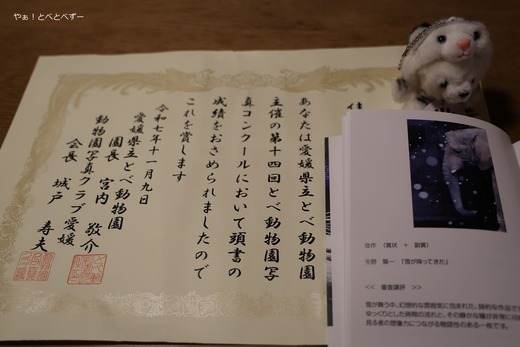 やぁ!とべとべずー
あなたは愛媛県立とべ動物園
主催の第十四回とべ動物園写
真コンクールにおいて頭書の
成績をおさめられましたので
これを賞します
令和七年十一月九日
愛媛県立とべ動物園
園長 宮内 敬介
動物園写真クラブ愛媛
会長 城戸 寿夫
佳作 (賞状 + 副賞)
賢一 「雪が降ってきた」
<< 審査講評 >>
雪が舞う中、幻想的な雰囲気に包まれた、詩的な作品で
ゆっくりとした時間の流れと、その静かな瞳が非常に印
見る者の想像力につながる物語性のある一枚です。